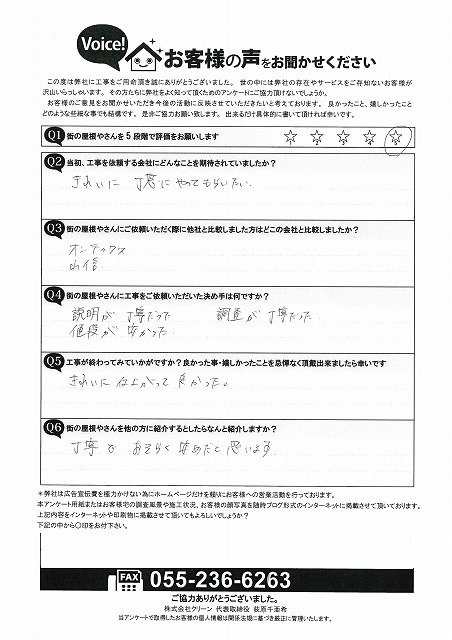 Voice!
お客様の声をお聞かせください
この度は弊社に工事をご用命頂き誠にありがとうございました。 世の中には弊社の存在やサービスをご存知ないお客様が
沢山いらっしゃいます。 その方たちに弊社をよく知って頂くためのアンケートにご協力頂けないでしょうか。
お客様のご意見をお聞かせいただき今後の活動に反映させていただきたいと考えております。 良かったこと、嬉しかったこと
どのような些細な事でも結構です。 是非ご協力お願い致します。 出来るだけ具体的に書いて頂ければ幸いです。
Q1 街の屋根やさんを5段階で評価をお願いします ☆ ☆ ☆ ☆ ☆
Q2 当初、工事を依頼する会社にどんなことを期待されていましたか?
きれいに 丁寧にやってもらいたい.
Q3 街の屋根やさんにご依頼いただく際に他社と比較しました方はどこの会社と比較しましたか?
オンテックス
山信
Q4 街の屋根やさんに工事をご依頼いただいた決め手は何ですか?
説明が丁寧だった 調査が丁寧だった.
値段が安かった.
Q5 工事が終わってみていかがですか?良かった事・嬉しかったことを忌憚なく頂戴出来ましたら幸いです
きれいに仕上がって良かった。
Q6 街の屋根やさんを他の方に紹介するとしたらなんと紹介しますか?
丁寧で おそらく安めだと思います.
*弊社は広告宣伝費を極力かけない為にホームページだけを頼りにお客様への営業活動を行っております。
本アンケート用紙またはお客様宅の調査風景や施工状況、お客様の顔写真を随時ブログ形式のインターネットに掲載させて頂いております。
上記内容をインターネットや印刷物に掲載させて頂いてもよろしいでしょうか?
下記の中から○印をお付下さい。
FAX 055-236-6263
ご協力ありがとうございました。
株式会社クリーン 代表取締役 荻原千亜希
当アンケートで取得したお客様の個人情報は関係法規に基づき厳正に管理いたします。